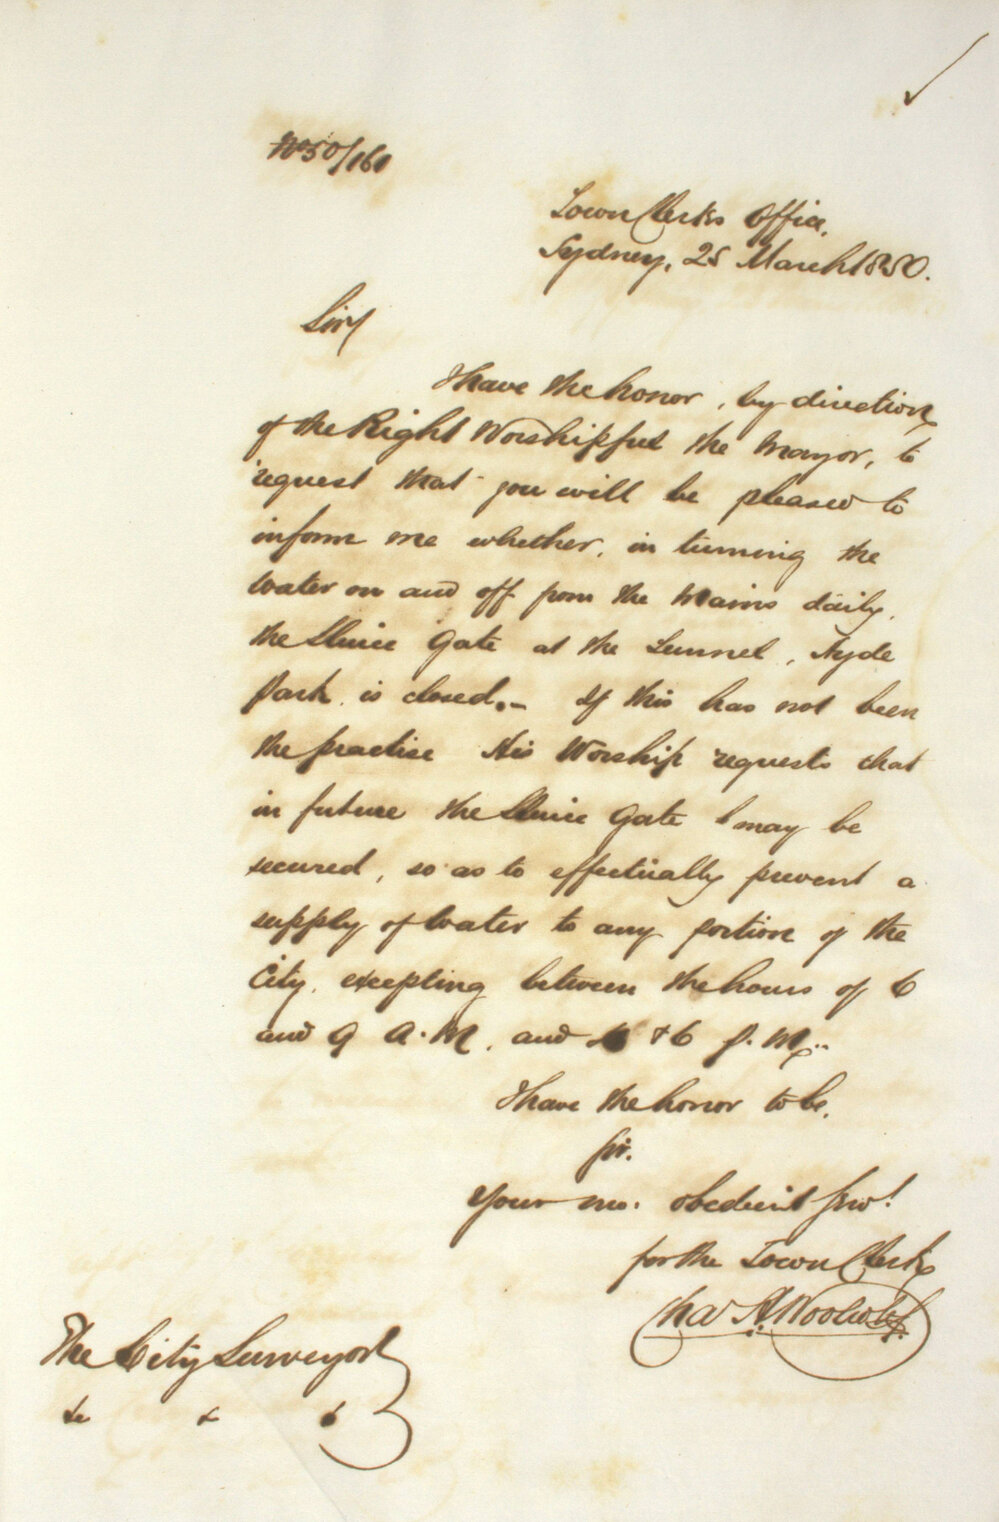 No 50/161
Town Clerks Office,
Sydney, 25 March 1850.
Sir,
I have the honor, by direction
of the Right Worshipful the Mayor, to
request that you will be pleased to
inform me whether, in turning the
Water on and off from the Mains daily,
the Sluice Gate at the Tunnel, Hyde
Park, is closed.- If this has not been
the practise His Worship requests that
in future the Sluice Gate may be
secured, so as to effectually prevent a
supply of Water to any portion of the
City, excepting between the hours of 6
and 9 A.M. and & 6 P.M.
I have the honor to be,
Sir.
Your mo. obedient Servt
for the Town Clerk
Chas H. Woolcott
The City Surveyor
&c & &